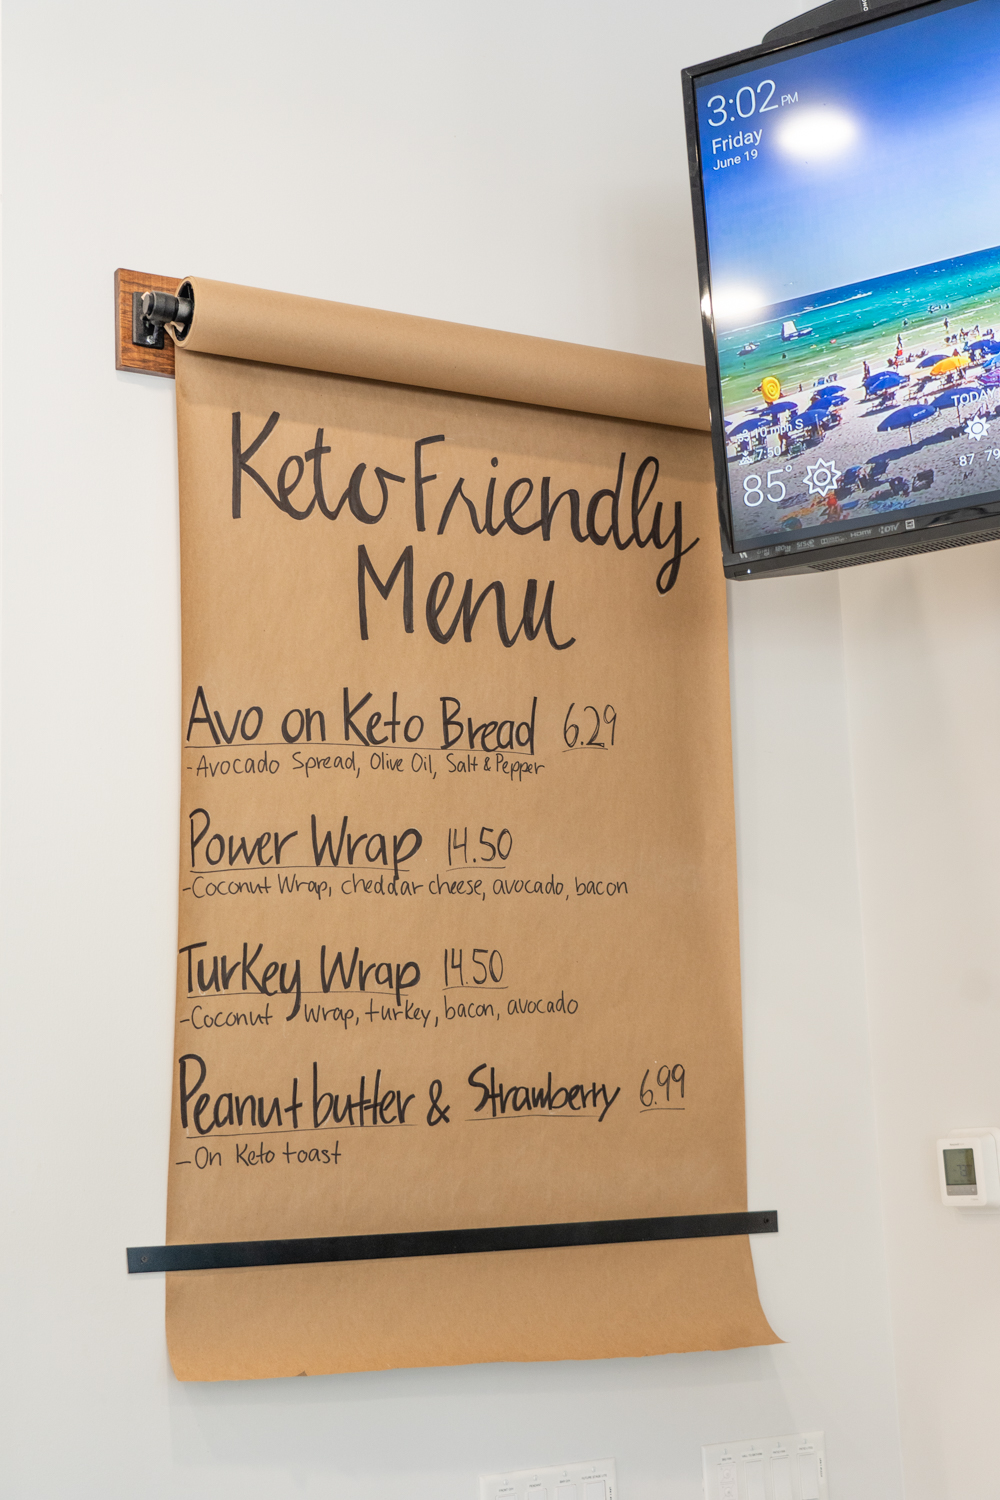 3:02 PM
Friday
June 19
Keto Friendly
Menu
Avo on Keto Bread 6.29
-Avocado Spread, Olive Oil, Salt & Pepper
Power Wrap 14.50
-Coconut Wrap, cheddar cheese, avocado, bacon
Turkey Wrap 14.50
-Coconut Wrap, turkey, bacon, avocado
Peanut butter & Strawberry 6.99
-On Keto toast
TODAY
10 mph S
7:50
85°
87 79